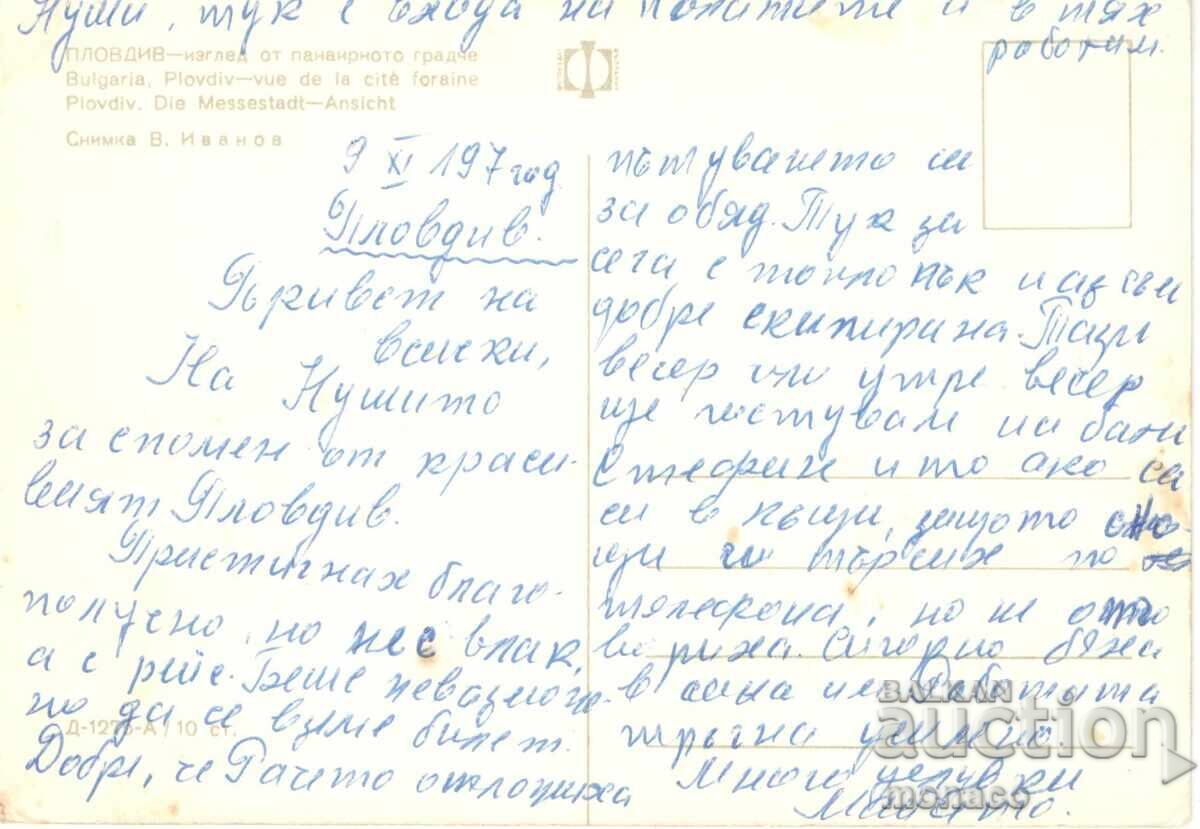 Нуши, тук е входа на палатите и в тях
работим.
ПЛОВДИВ—изглед от панаирното градче
Bulgaria, Plovdiv—vue de la cité foraine
Plovdiv. Die Messestadt—Ansicht
Снимка В. Иванов
9 XI 197 год
Пловдив.
Привет на
всички,
На Нушито
за спомен от краси-
вият Пловдив.
Пристигнах благо-
получно, но не с влак,
а с рейс. Беше невъзмож-
но да се вземе билет.
Д-1275-А / 10 ст.
Добре, че отложиха
пътуването си
за обяд. Тук за
сега е топло пък и аз съм
добре екипирана. Тази
вечер или утре вечер
ще гостувам на бати
Стефан и то ако са
си в къщи, защото сно-
щи ги търсих по
телефона, но не отго
вориха. Сигорно бяха
в
тръгна
Много целувки
BALKAN
auction
monaco